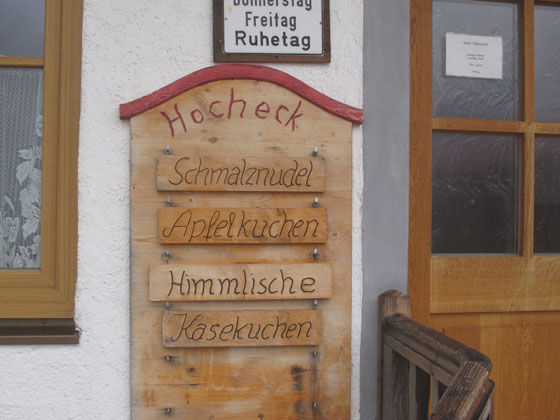 Donnerstag
Freitag
Ruhetag
Hocheck
Schmalznudel
Apfelkuchen
Himmlische
Käsekuchen